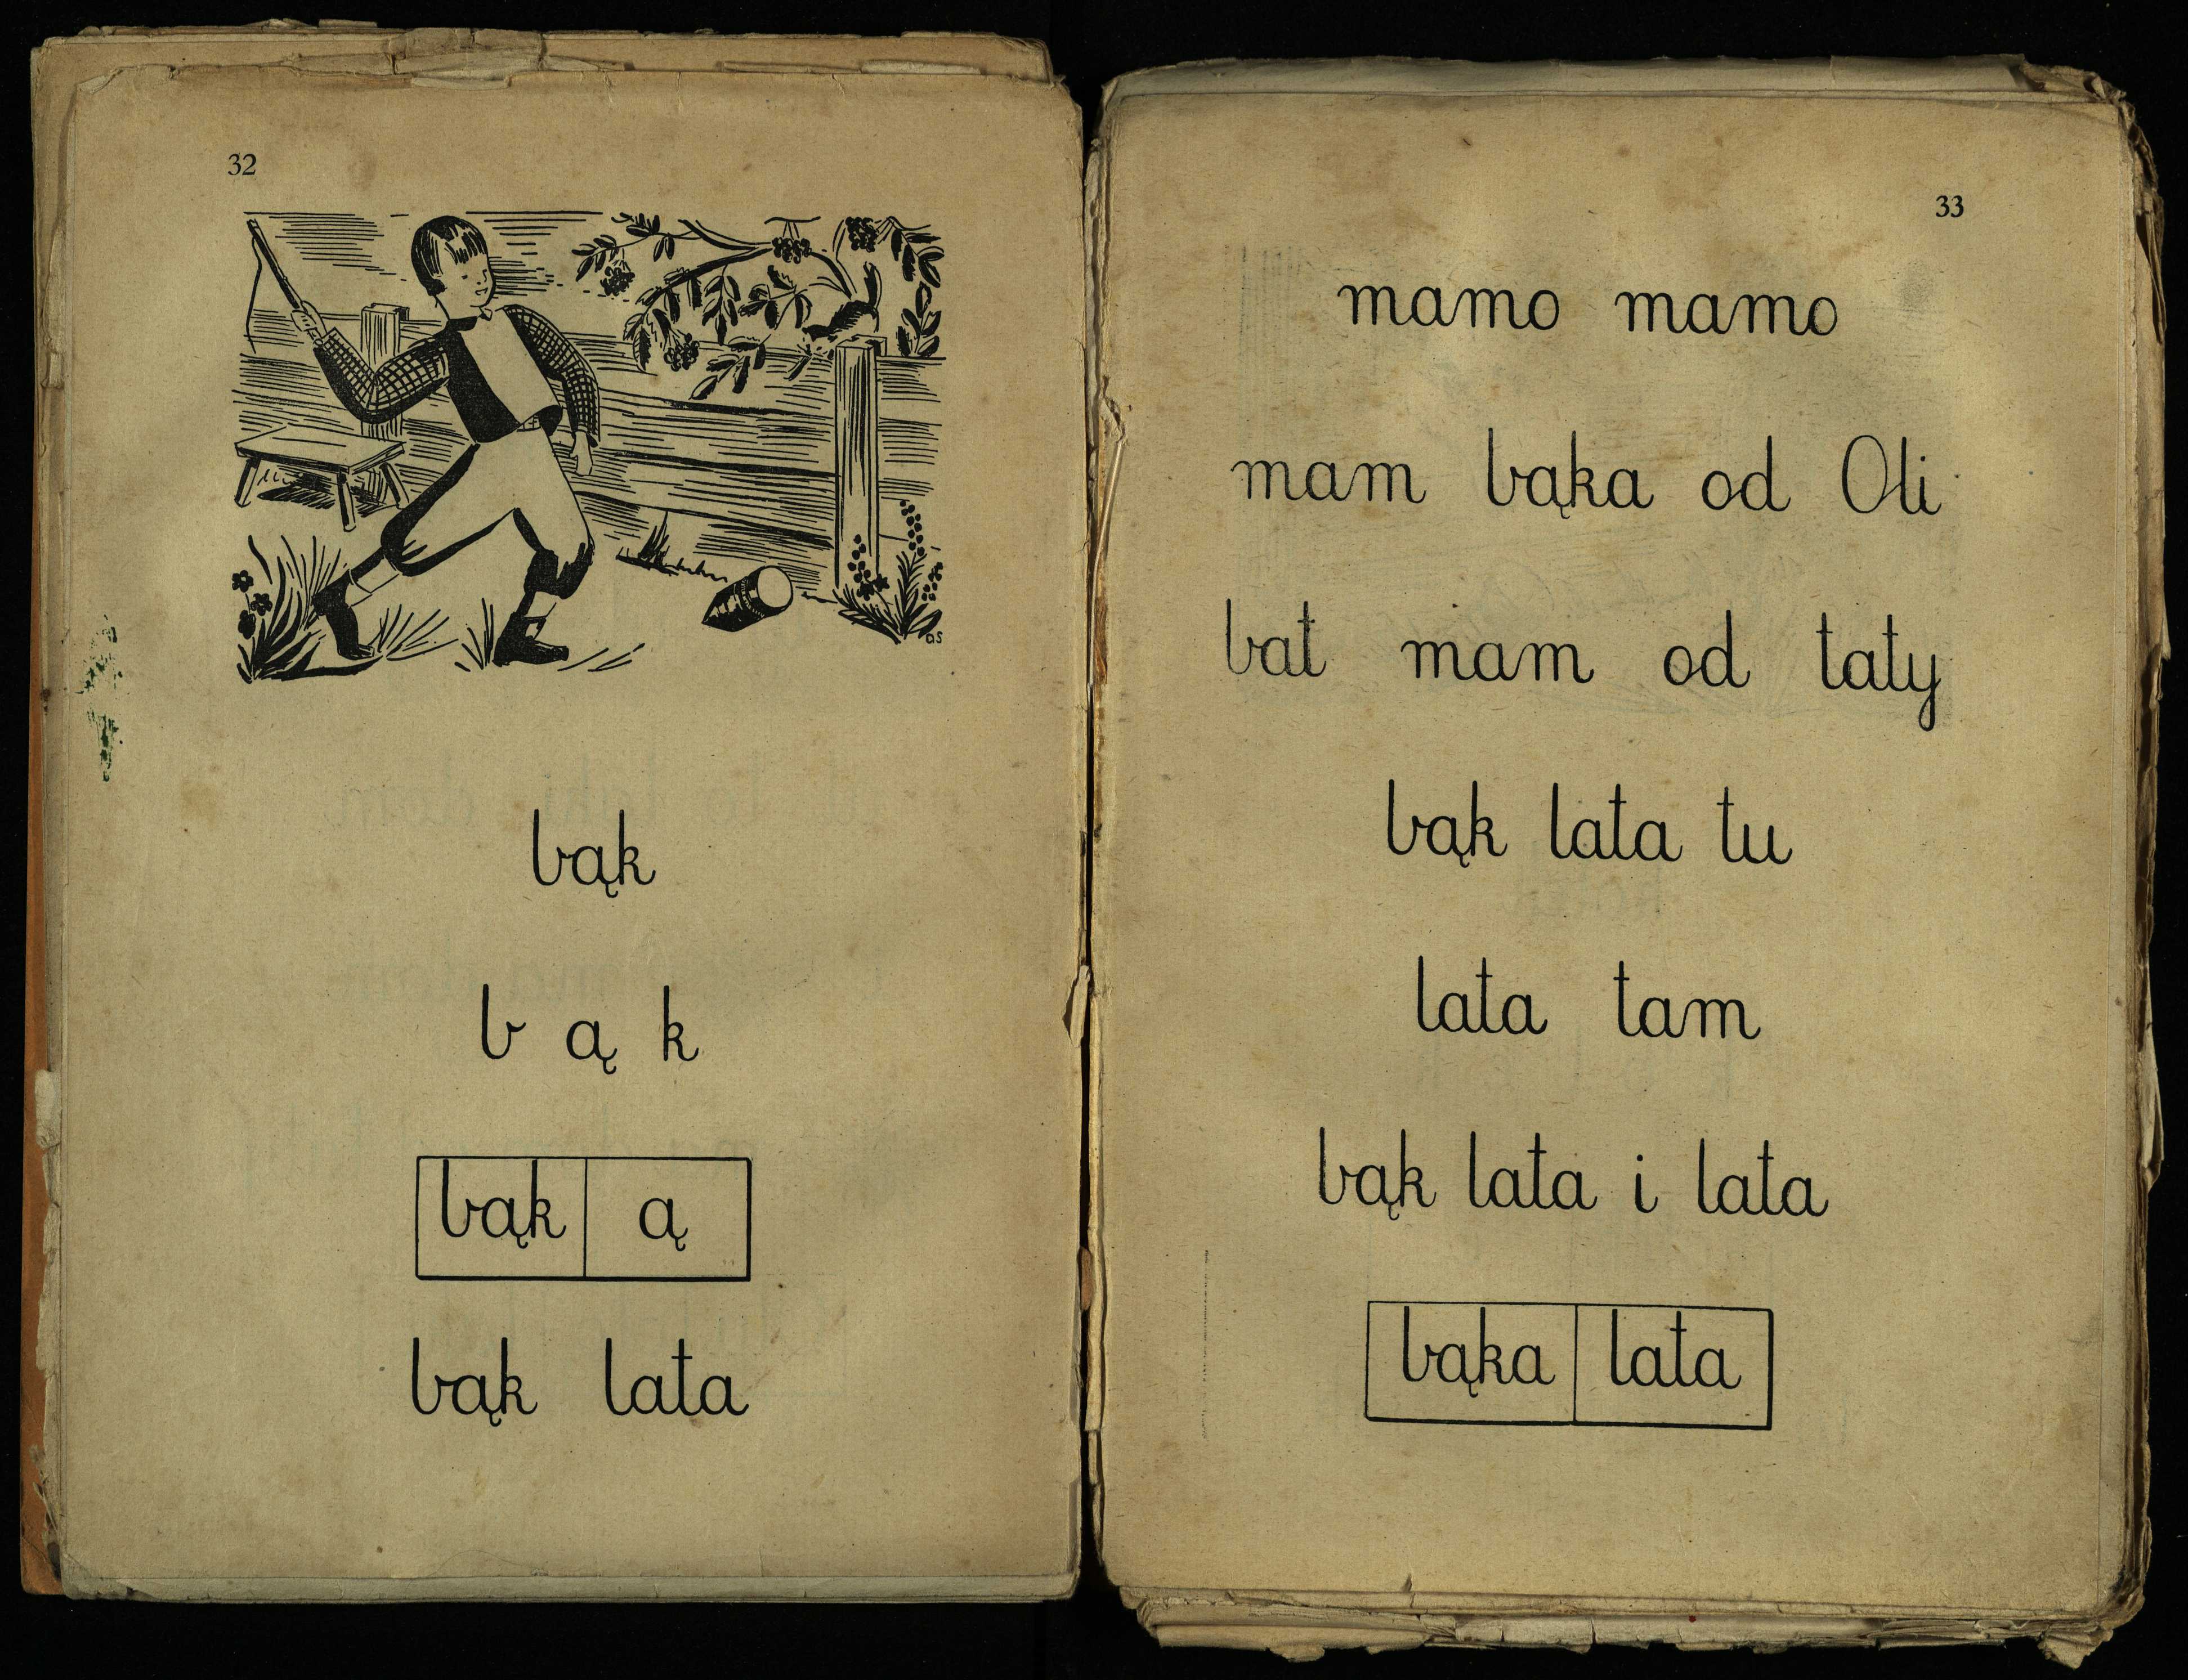 32
bąk
b ą k
bąk ą
bąk lata
33
mamo mamo
mam bąka od Oli
bat mam od taty
bąk lata tu
lata tam
bąk lata i lata
bąka lata